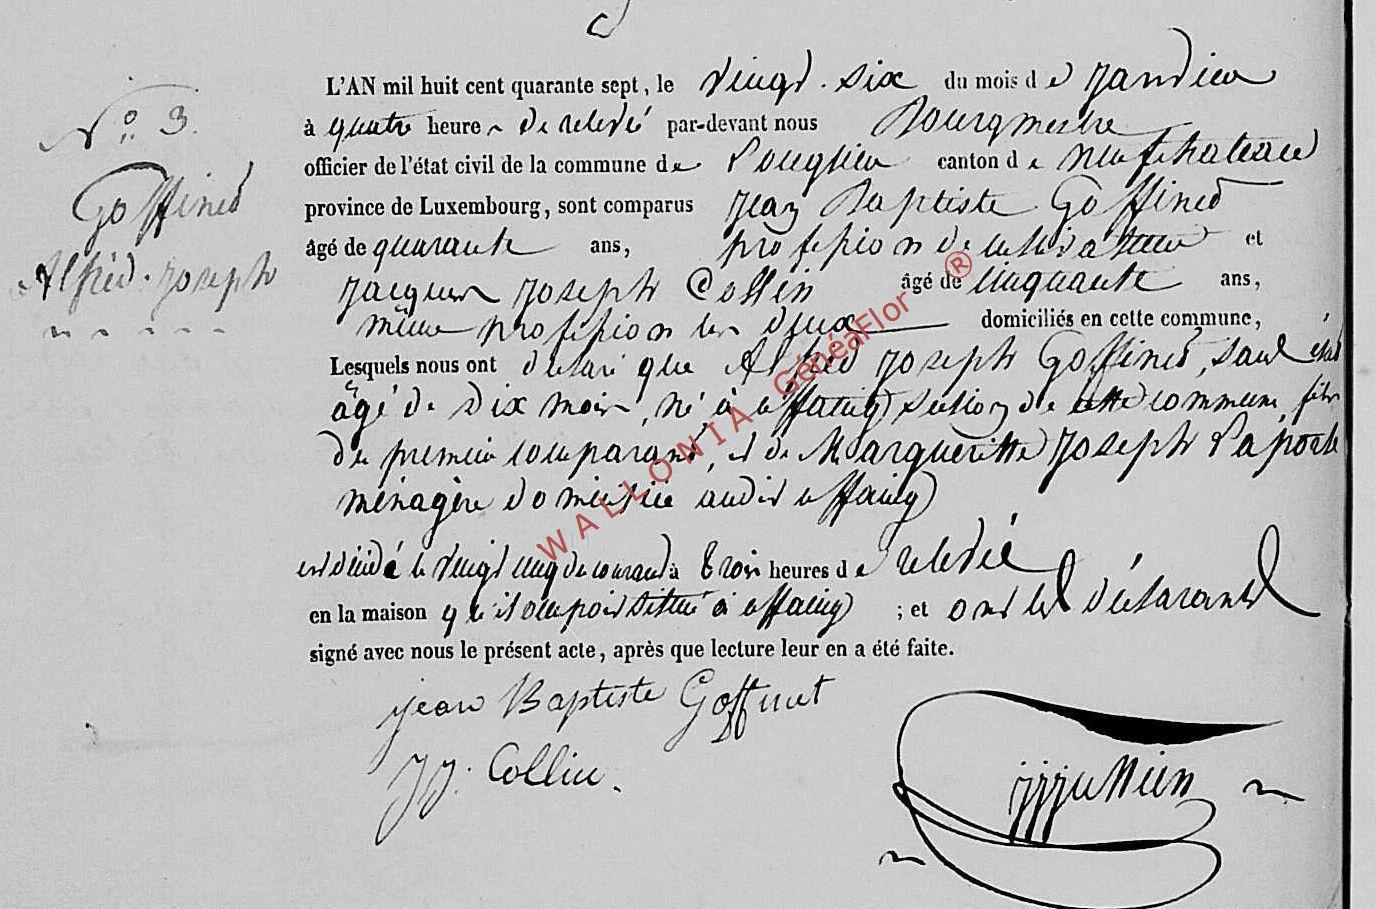 N° 3.
Goffinet
Alfred-Joseph
L'AN mil huit cent quarante sept, le vingt-six du mois de Janvier
à quatre heures de relevé par-devant nous Bourgmestre
officier de l'état civil de la commune de canton de neufchateau
province de Luxembourg, sont comparus Jean Baptiste Goffinet
âgé de quarante ans, profession de cultivateur et
Jacques Joseph Collin âgé de cinquante ans,
même profession les deux domiciliés en cette commune,
Lesquels nous ont déclaré que Alfred Joseph Goffinet, seul
âgé de dix mois, né à offaing section de cette commune, fils
du premier comparant, et de Margueritte Joseph Laporte
ménagère domiciliée audit offaing
est décédé le vingt cinq du courant à trois heures de relevée
en la maison qu'il occupoit située à offaing ; et ont les déclarants
signé avec nous le présent acte, après que lecture leur en a été faite.
jean Baptiste Goffinet
JJ. Collin.
WALLONIA GénéaFlor ®